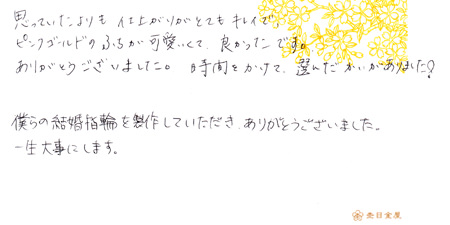 思っていたよりも 仕上がりがとてもキレイで、
ピンクゴールドのふちが可愛いくて、良かったです。
ありがとうございました。 時間をかけて、選んだかいがありました!
僕らの結婚指輪を製作していただき、ありがとうございました。
一生大事にします。
杢目金屋